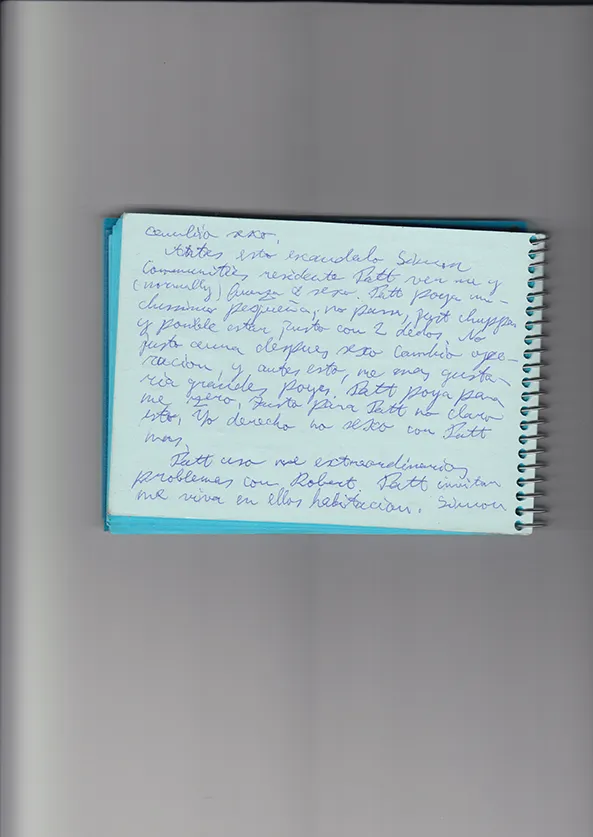 cambia sexo.
Antes esto escandalo Simon
Communities residente Patt ven me y
(normally) fuerza a sexo. Patt poya mu-
chissimo pequeña, no pasa, just chuppa
y ponible estar justo con 2 dedos. No
justo cuna despues sexo cambio ope-
racion, y antes esto, me mas gusta-
ria grandes poyas. Patt poya para
me zero, justo para Patt no claro
esto, Yo derecho no sexo con Patt
mas.
Patt usa me extraordinarios
problemas con Robert. Patt invitan
me viva en ellos habitacion. Simon